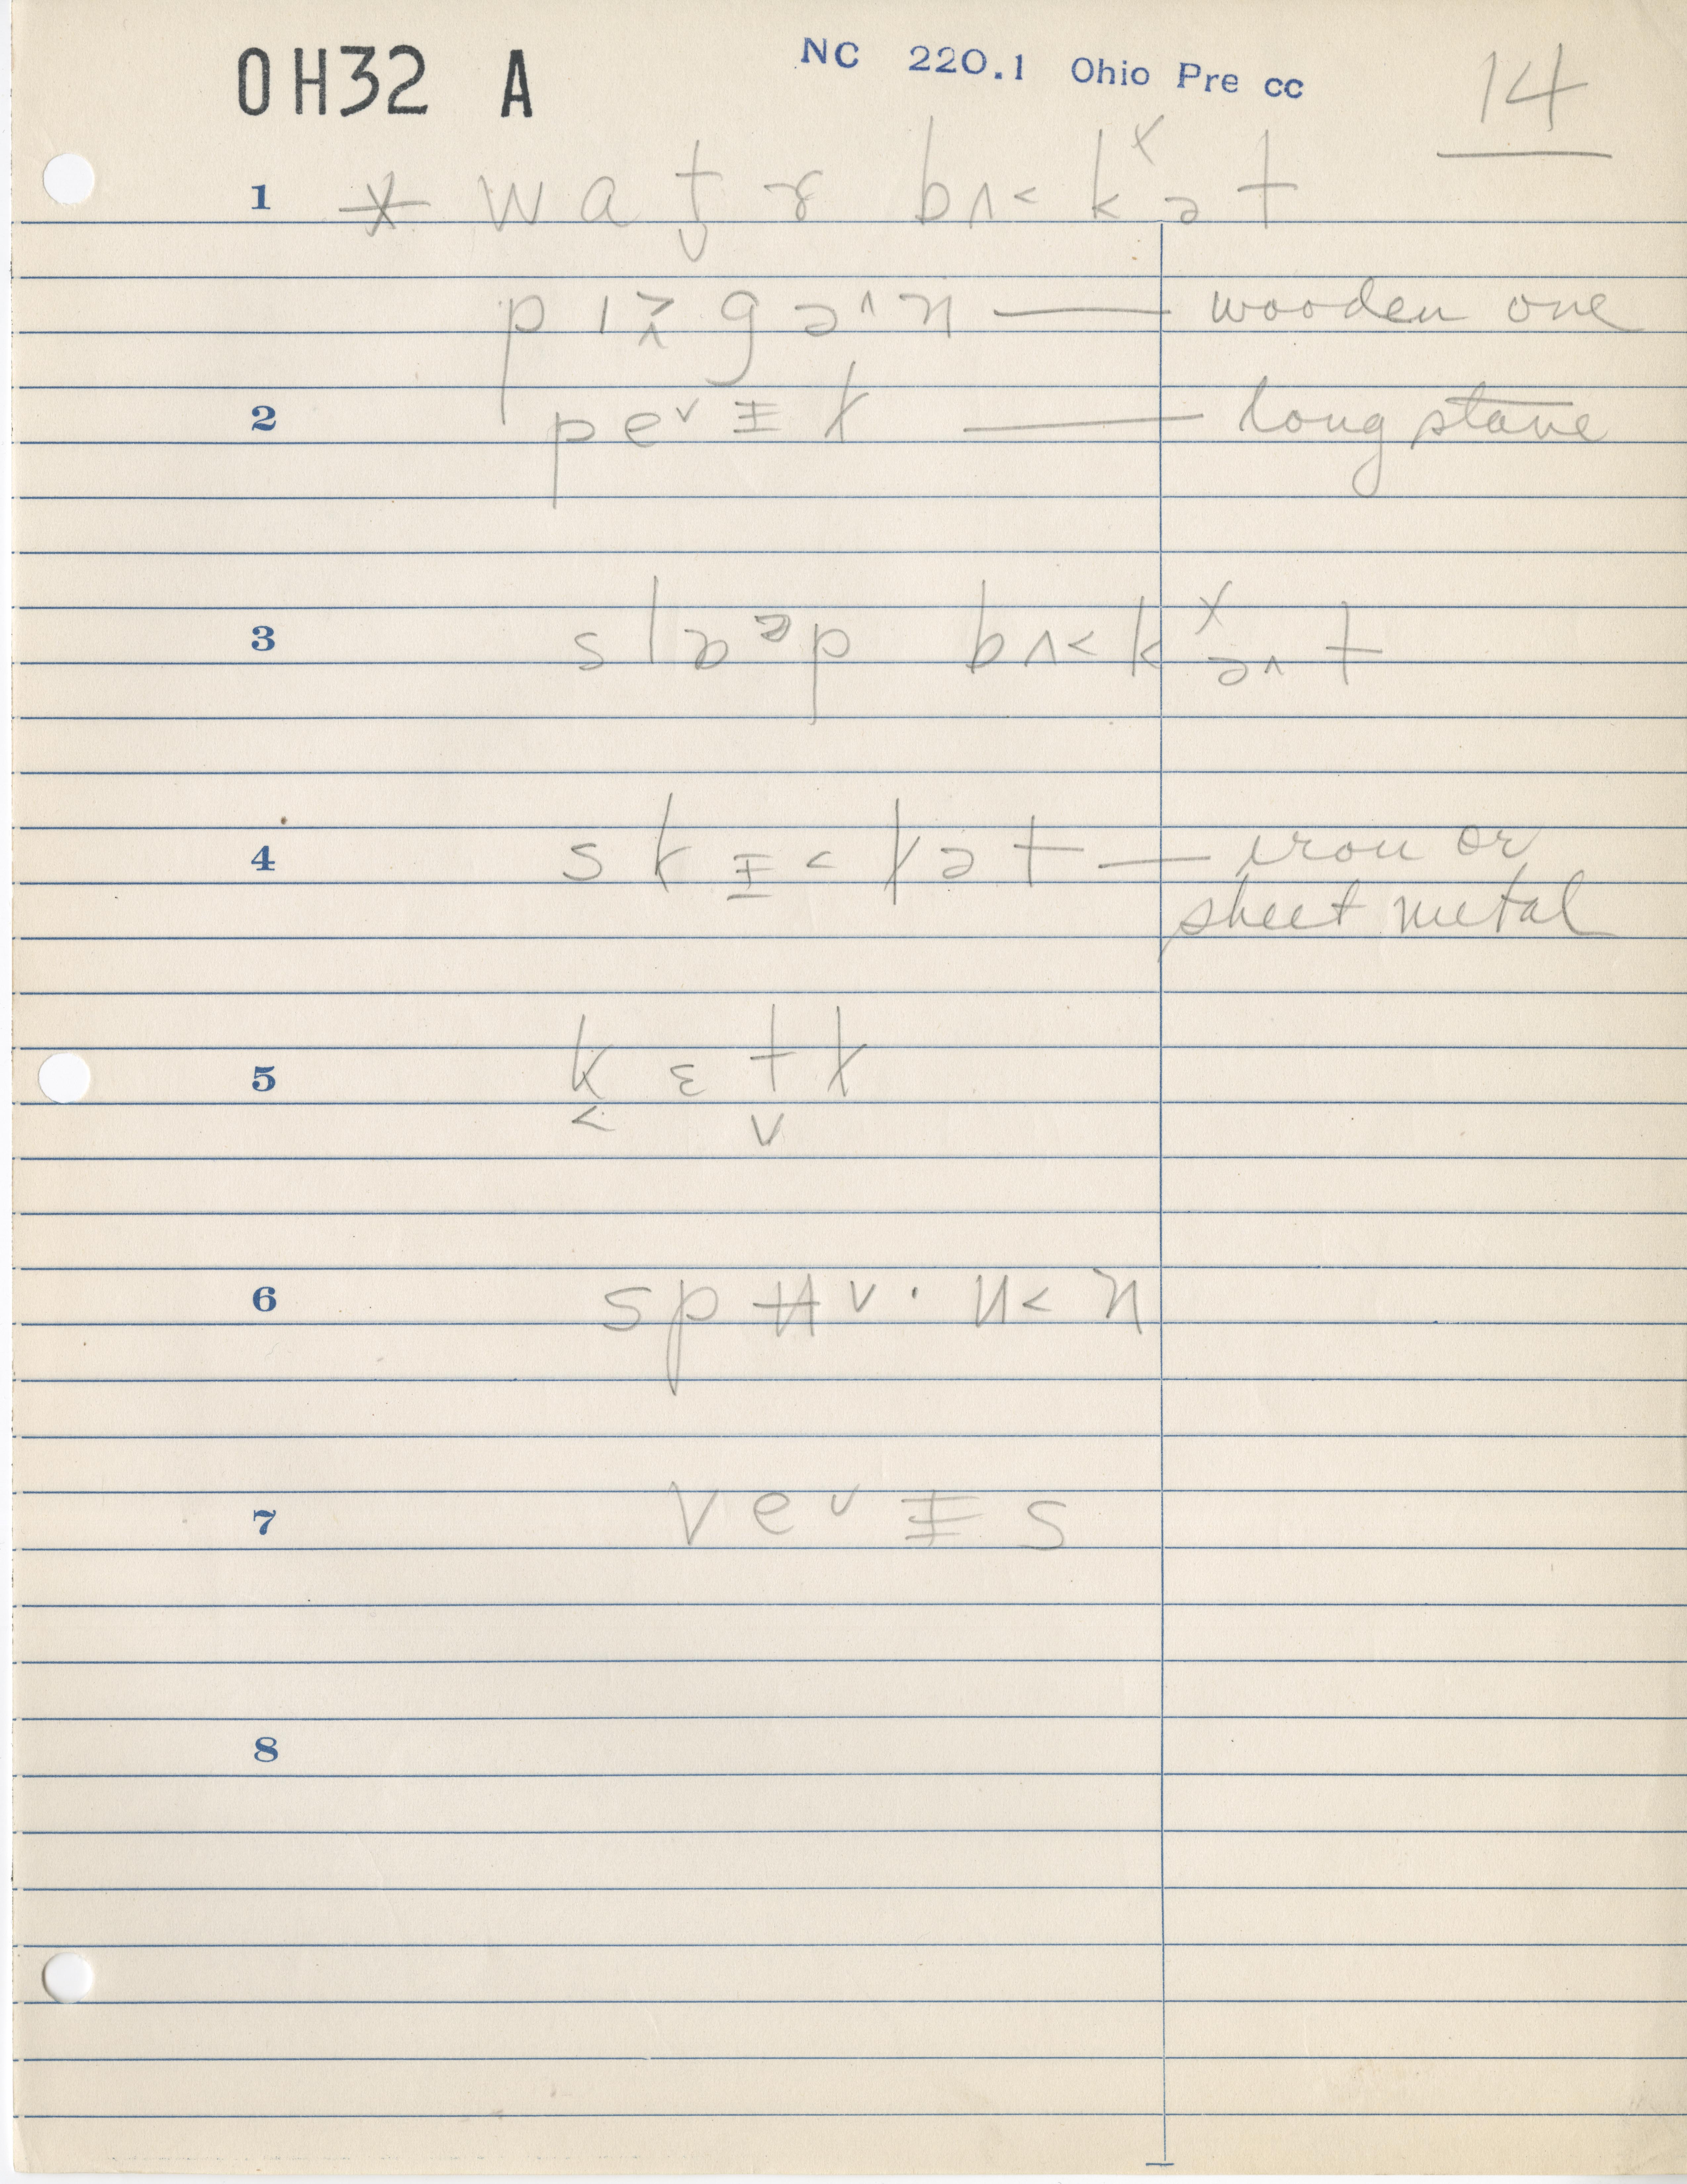 OH32 A NC 220.1 Ohio Pre cc 14
1 * w a t̬ ɚ bʌ˂ kˣ ə t
p ɪ g ə^ n — wooden one
2 p e ˅ ɪ k — long stave
3 s l ɒ p bʌ˂ kˣ ə˄ t
4 s k ɪ ˂ k ə t — iron or
sheet metal
5 k̬ ɛ t̬ k
6 s p ʉ ˅ · n ˂ n
7 v e ˅ ɪ s
8